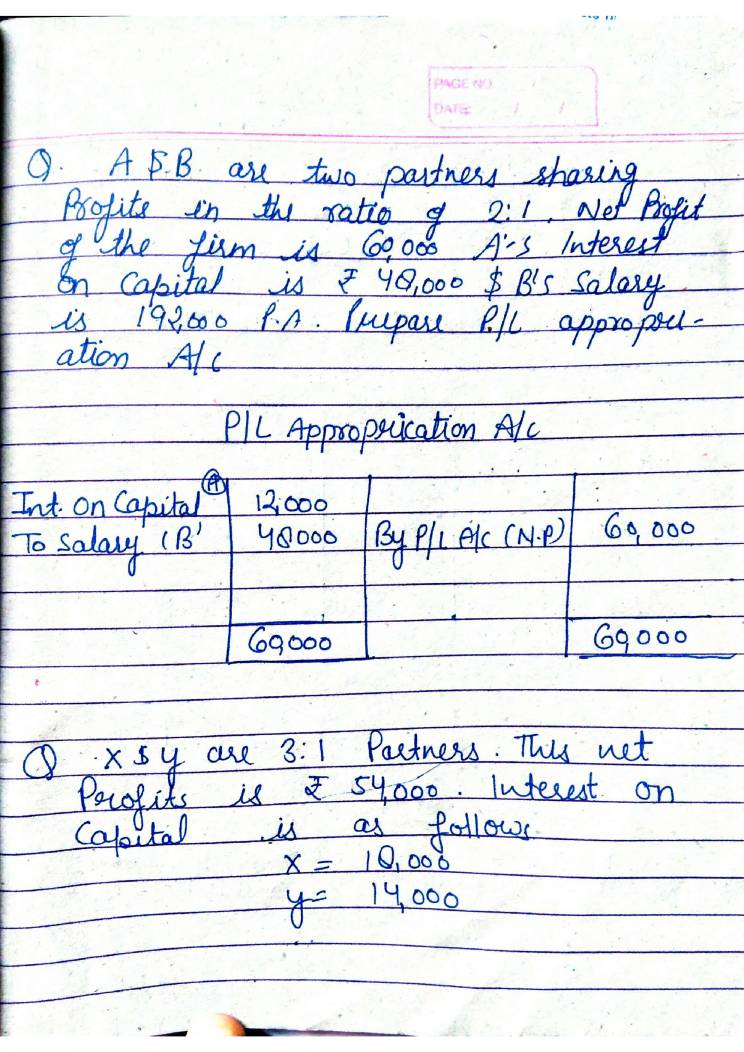 PAGE NO.
DATE: / /
Q. A & B are two partners sharing
Profits in the ratio of 2:1. Net Profit
of the firm is 60,000 A's Interest
on Capital is ₹ 48,000 & B's Salary
is 192,000 P.A. Prepare P/L appropri-
ation A/c
P/L Approprication A/c
Int. On Capital (A) 12,000
To Salary (B' 48000 By P/L A/c (N.P) 60,000
60,000 60,000
Q X & Y are 3:1 Partners. This net
Profits is ₹ 54,000. Interest on
Capital is as follows
X = 18,000
Y = 14,000